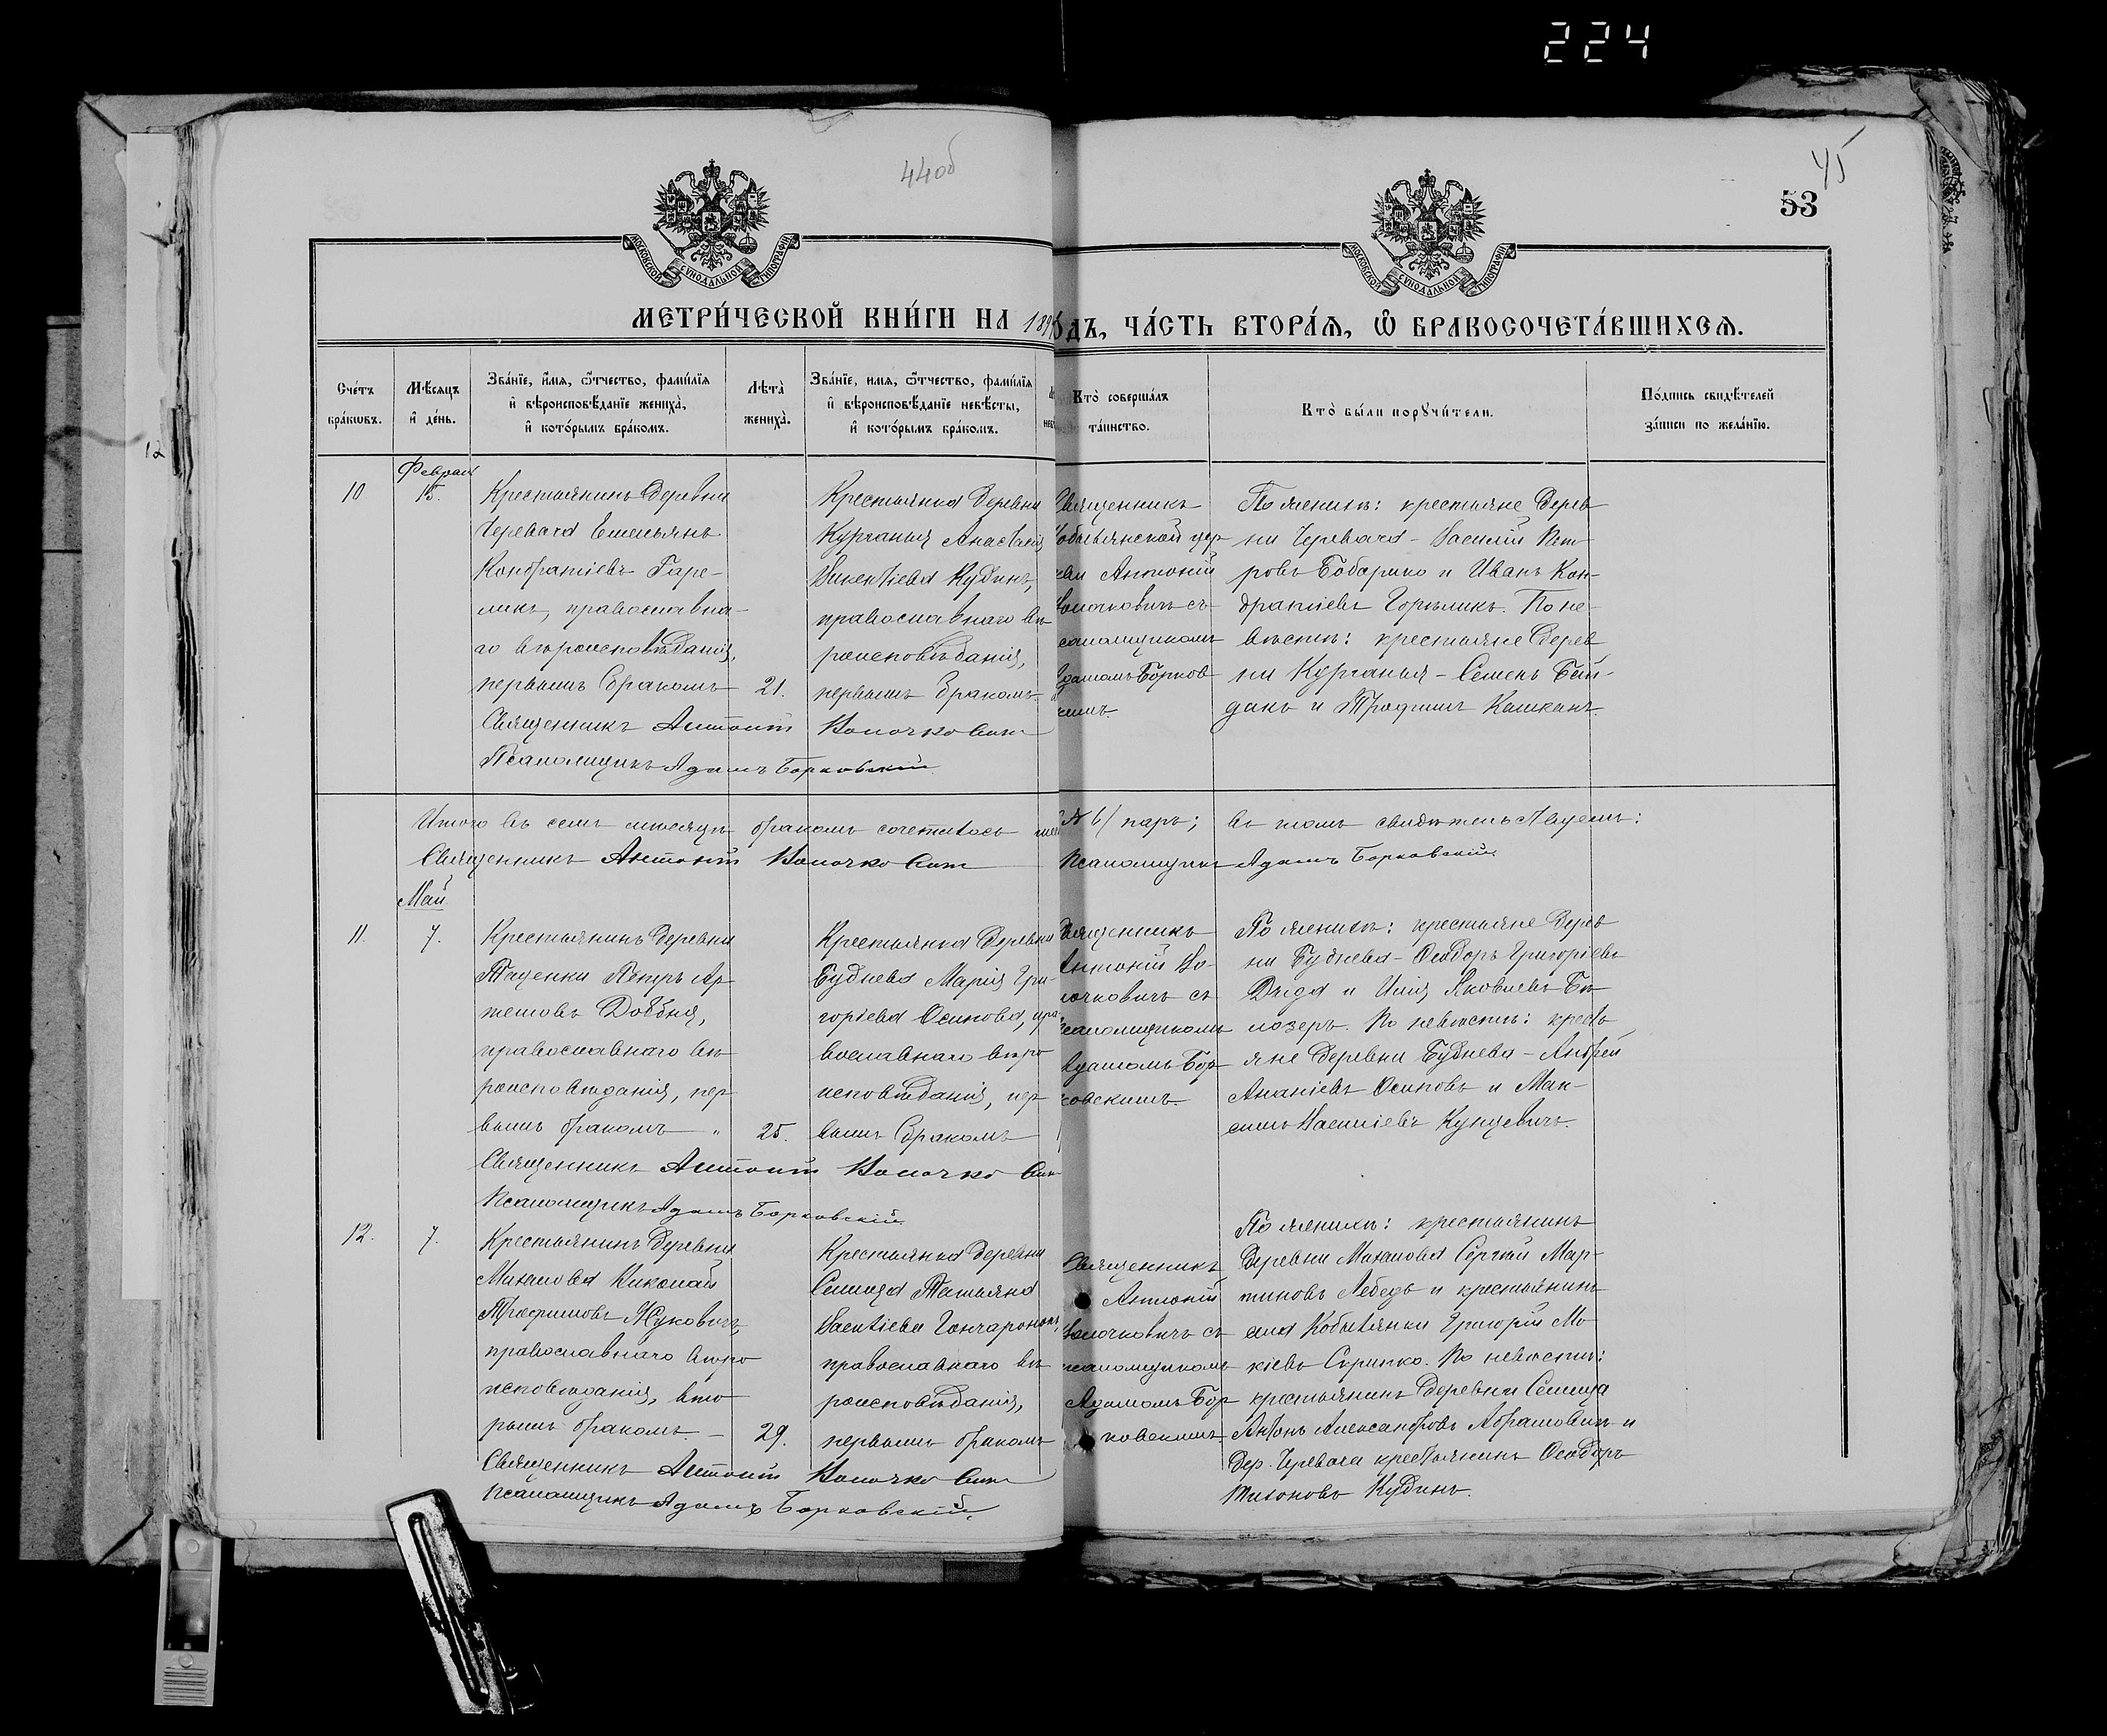 224
44об
45
53
МОСКОВСКОЙ СУНОДАЛЬНОЙ ТИПОГРАФІИ
МОСКОВСКОЙ СУНОДАЛЬНОЙ ТИПОГРАФІИ
МЕТРИ́ЧЕСКОЙ КНИ́ГИ НА 189
ОДЪ, ЧА́СТЬ ВТОРА́Ѧ, Ѿ БРАКОСОЧЕТА́ВШИХСѦ.
Сче́тъ бра́кѡвъ.
Мѣ́сѧцъ и҆ де́нь.
Зва́нїе, и҆́мѧ, ѻ҆́тчество, фами́лїѧ
и҆ вѣроисповѣ́данїе жениха̀,
и҆ кото́рымъ бра́комъ.
Лѣта̀ жениха̀.
Зва́нїе, имѧ, ѻ҆́тчество, фами́лїѧ
и҆ вѣроисповѣ́данїе невѣ́сты,
и҆ кото́рымъ бра́комъ.
Кто̀ соверша́лъ
та́инство.
Кто̀ бы́ли порꙋчи́тели.
По́дпись свидѣ́телей
за́писи по жела́нїю.
12
10.
15.
Крестьянинъ деревни
Черевача Емельянъ
Кондратіевъ Гаре-
ликъ, православна-
го вѣроисповѣданія,
первымъ бракомъ
21.
Крестьянка деревни
Курганья Анастасія
Викентіева Кудинъ,
православнаго вѣ-
роисповѣданія,
первымъ бракомъ
Священникъ
Кобылянской цер-
кви Антоній
Волочковичъ съ
псаломщикомъ
Адамомъ Борков-
скимъ.
По женихѣ: крестьяне дерев
ни Черевача - Василій Пет
ровъ Бобарико и Иванъ Кон-
дратіевъ Гореликъ. По не-
вѣстѣ: крестьяне дерев
ни Курганья - Семенъ Бай-
дакъ и Трофимъ Кашканъ.
Священникъ Антоній Волочковичъ
Псаломщикъ Адамъ Борковскій
Итого въ семъ мѣсяцѣ бракомъ сочеталось
6/ паръ; въ томъ свидѣтельствуемъ:
Священникъ Антоній Волочковичъ
Псаломщикъ Адамъ Борковскій.
Май.
11.
7.
Крестьянинъ деревни
Таценки Петръ Ар
темовъ Довбня,
православнаго вѣ
роисповѣданія, пер
вымъ бракомъ "
25.
Крестьянка деревни
Буднева Марія Гри-
горіева Осипова, пра-
вославнаго вѣро
исповѣданія, пер
вымъ бракомъ
Священникъ
Антоній Во-
лочковичъ съ
псаломщикомъ
Адамомъ Бор
ковскимъ.
По женихѣ: крестьяне дерев
ни Буднева - Ѳеодоръ Григоріевъ
и Илія Яковлевъ Бѣ
лозеръ. По невѣстѣ: кресть
яне деревни Буднева - Андрей
Ананіевъ Осиповъ и Мак-
симъ Василіевъ Кунцевичъ.
Священникъ Антоній Волочкович
Псаломщикъ Адамъ Борковскій.
12.
7.
Крестьянинъ деревни
Михалова Николай
Трофимовъ Жуковичъ,
православнаго вѣро
исповѣданія, вто
рымъ бракомъ. -
29.
Крестьянка деревни
Селища Татьяна
Василіева Гончаронокъ,
православнаго вѣ
роисповѣданія,
первымъ бракомъ
Священникъ
Антоній
Волочковичъ съ
псаломщикомъ
Адамомъ Бор
ковскимъ
По женихѣ: крестьянинъ
деревни Михалова Сергій Мар-
тиновъ Лебедь и крестьянинъ
села Кобылянки Григорій Мо
кіевъ Скрипко. По невѣстѣ:
крестьянинъ деревни Селища
Антонъ Александровъ Абрамовичъ и
дер. Черевача крестьянинъ Ѳеодоръ
Тихоновъ Кудинъ.
Священникъ Антоній Волочковичъ
Псаломщикъ Адамъ Борковскій.